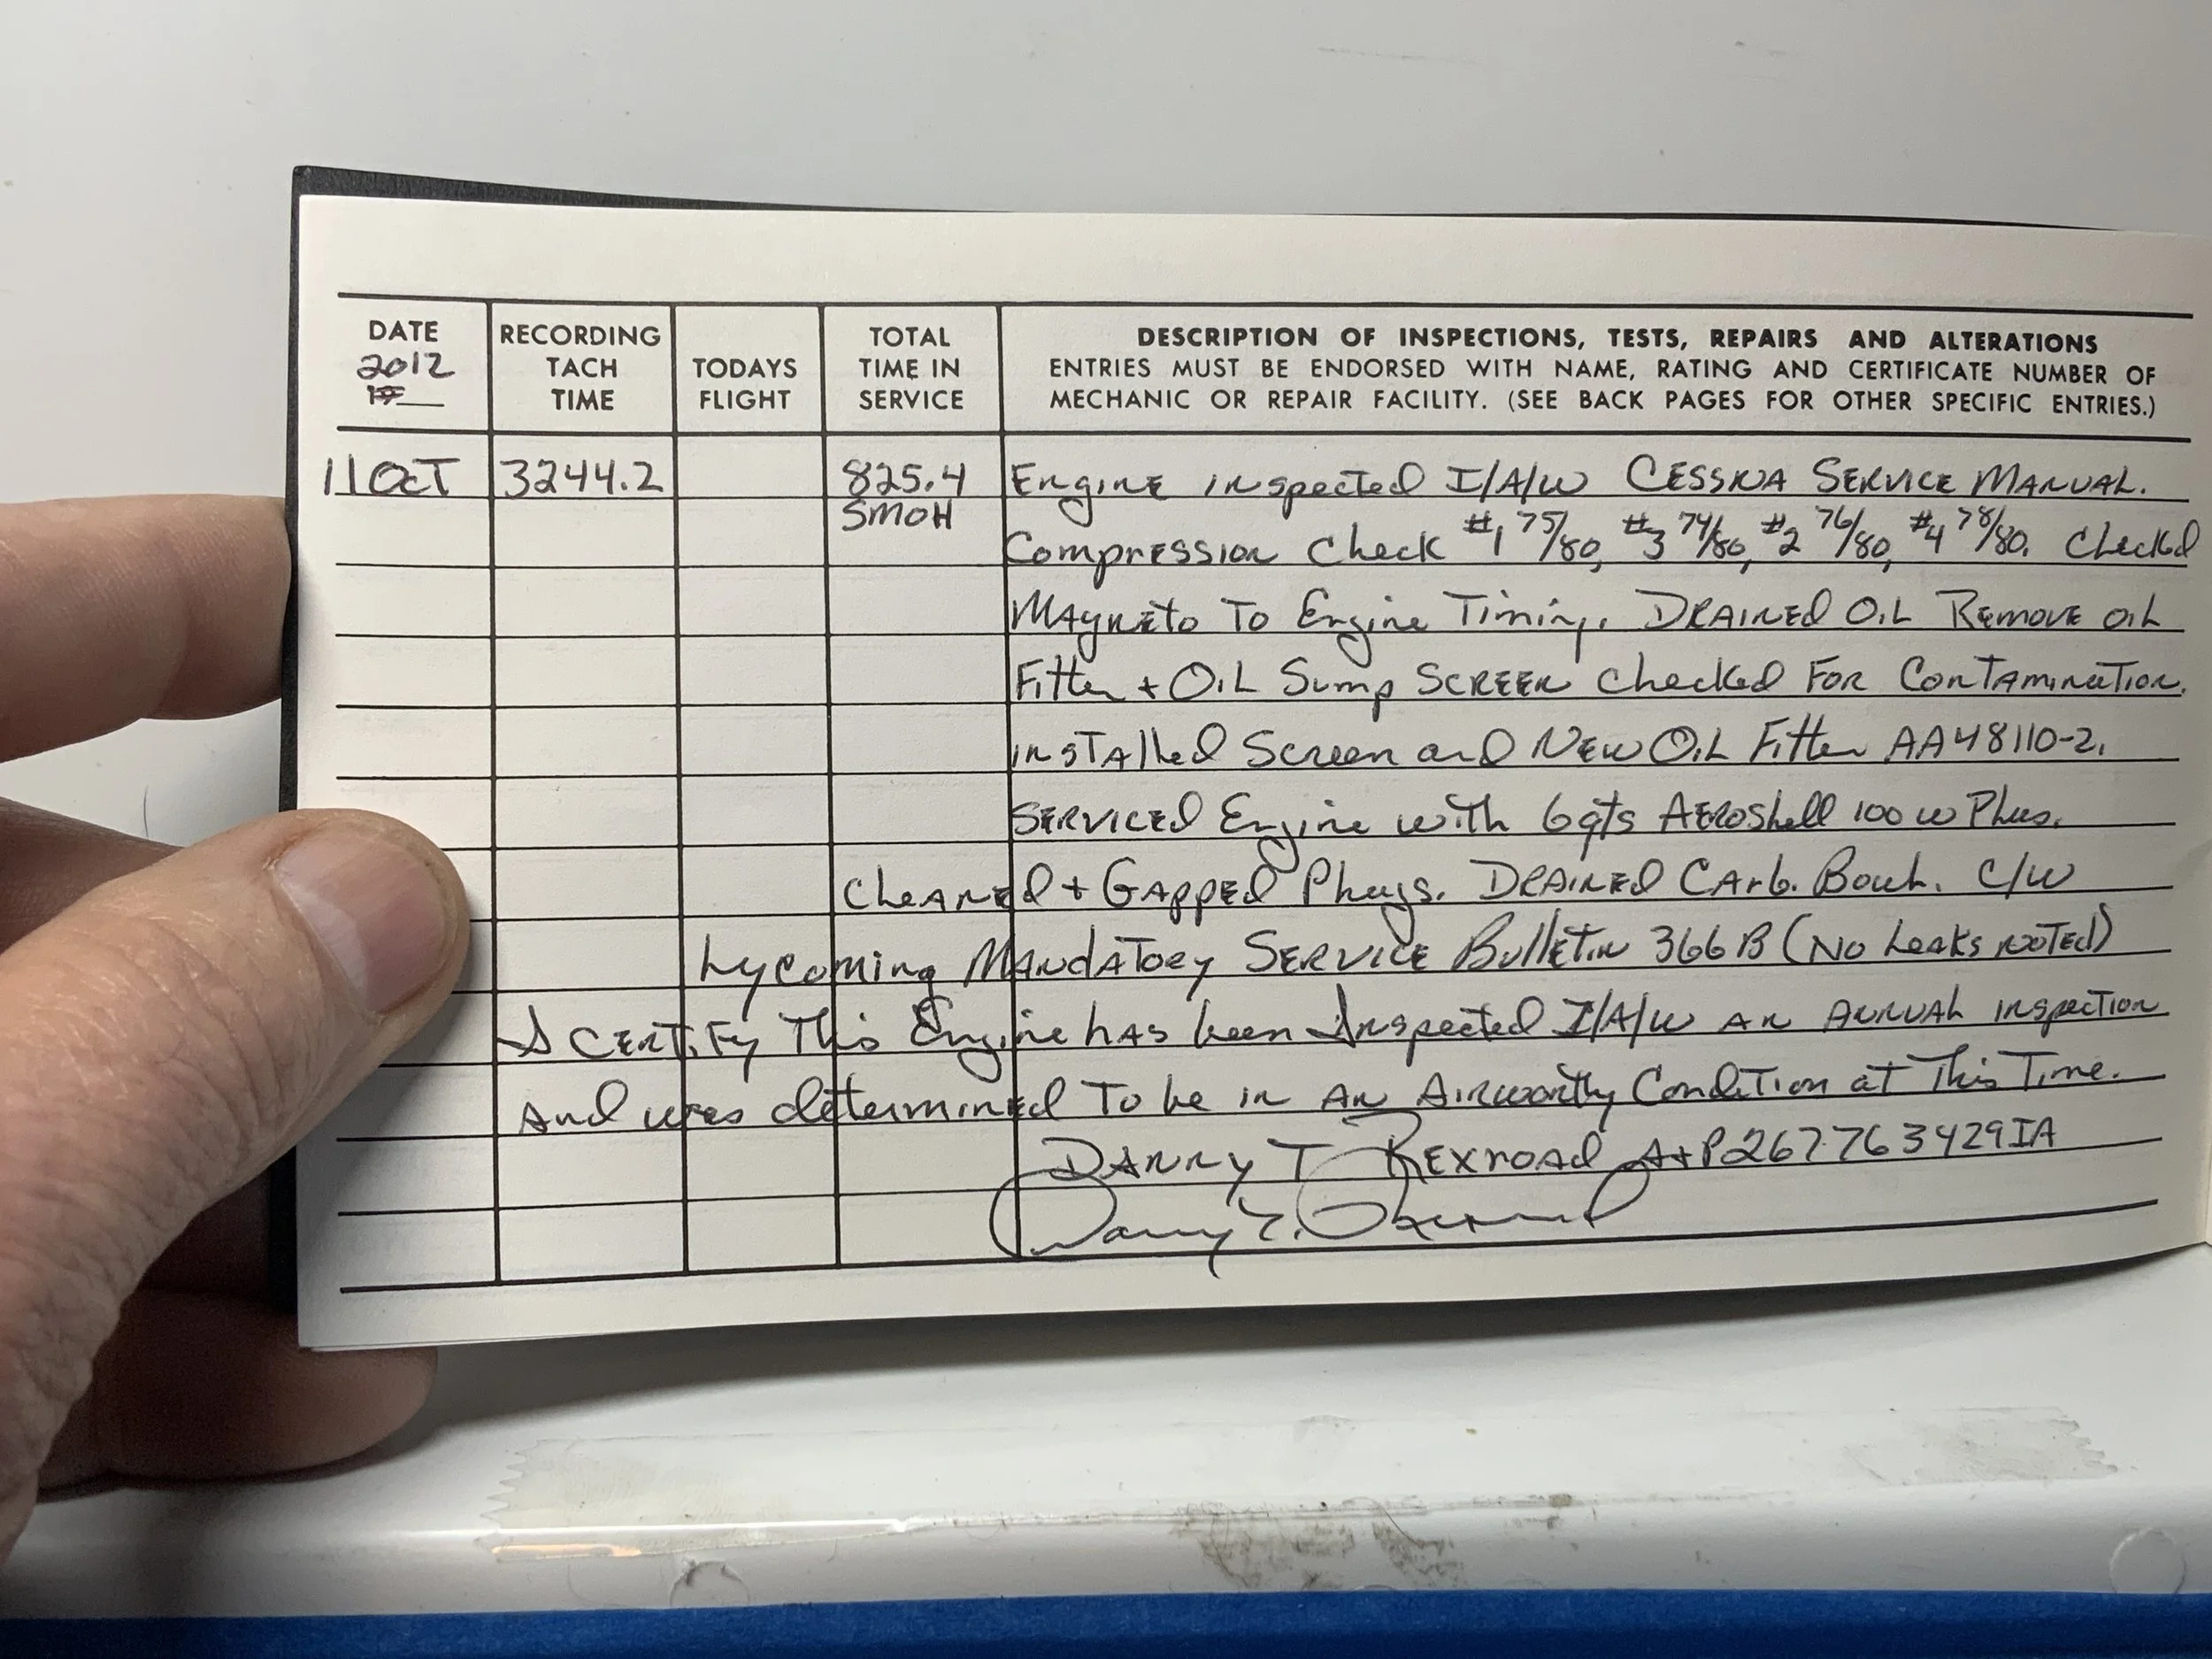 DATE
2012
19
RECORDING
TACH
TIME
TODAYS
FLIGHT
TOTAL
TIME IN
SERVICE
DESCRIPTION OF INSPECTIONS, TESTS, REPAIRS AND ALTERATIONS
ENTRIES MUST BE ENDORSED WITH NAME, RATING AND CERTIFICATE NUMBER OF
MECHANIC OR REPAIR FACILITY. (SEE BACK PAGES FOR OTHER SPECIFIC ENTRIES.)
11 OCT 3244.2 825.4 Engine inspected I/A/W CESSNA SERVICE MANUAL.
SMOH
Compression Check #1 75/80, #3 74/80, #2 76/80, #4 78/80. Checked
Magneto To Engine Timing. DRAINED OIL Remove oil
Filter + OIL Sump SCREEN checked FOR ContAminaTion.
inSTAlled Screen and NEW OIL Filter AA48110-2.
SERVICEd Engine with 6qts AEROShell 100 W Plus.
CleANEd + GAPPED Plugs. DRAINED CArb. Bowl. C/W
Lycoming MANdATory SERVICE BulleTin 366B (No Leaks NOTEd)
I CERTIFy This Engine hAs been Inspected I/A/W AN ANNUAL inspecTion
And was determined To be in AN Airworthy CondiTion at This Time.
DANNY T REXroad A+P267763429IA
Danny T. Rexroad